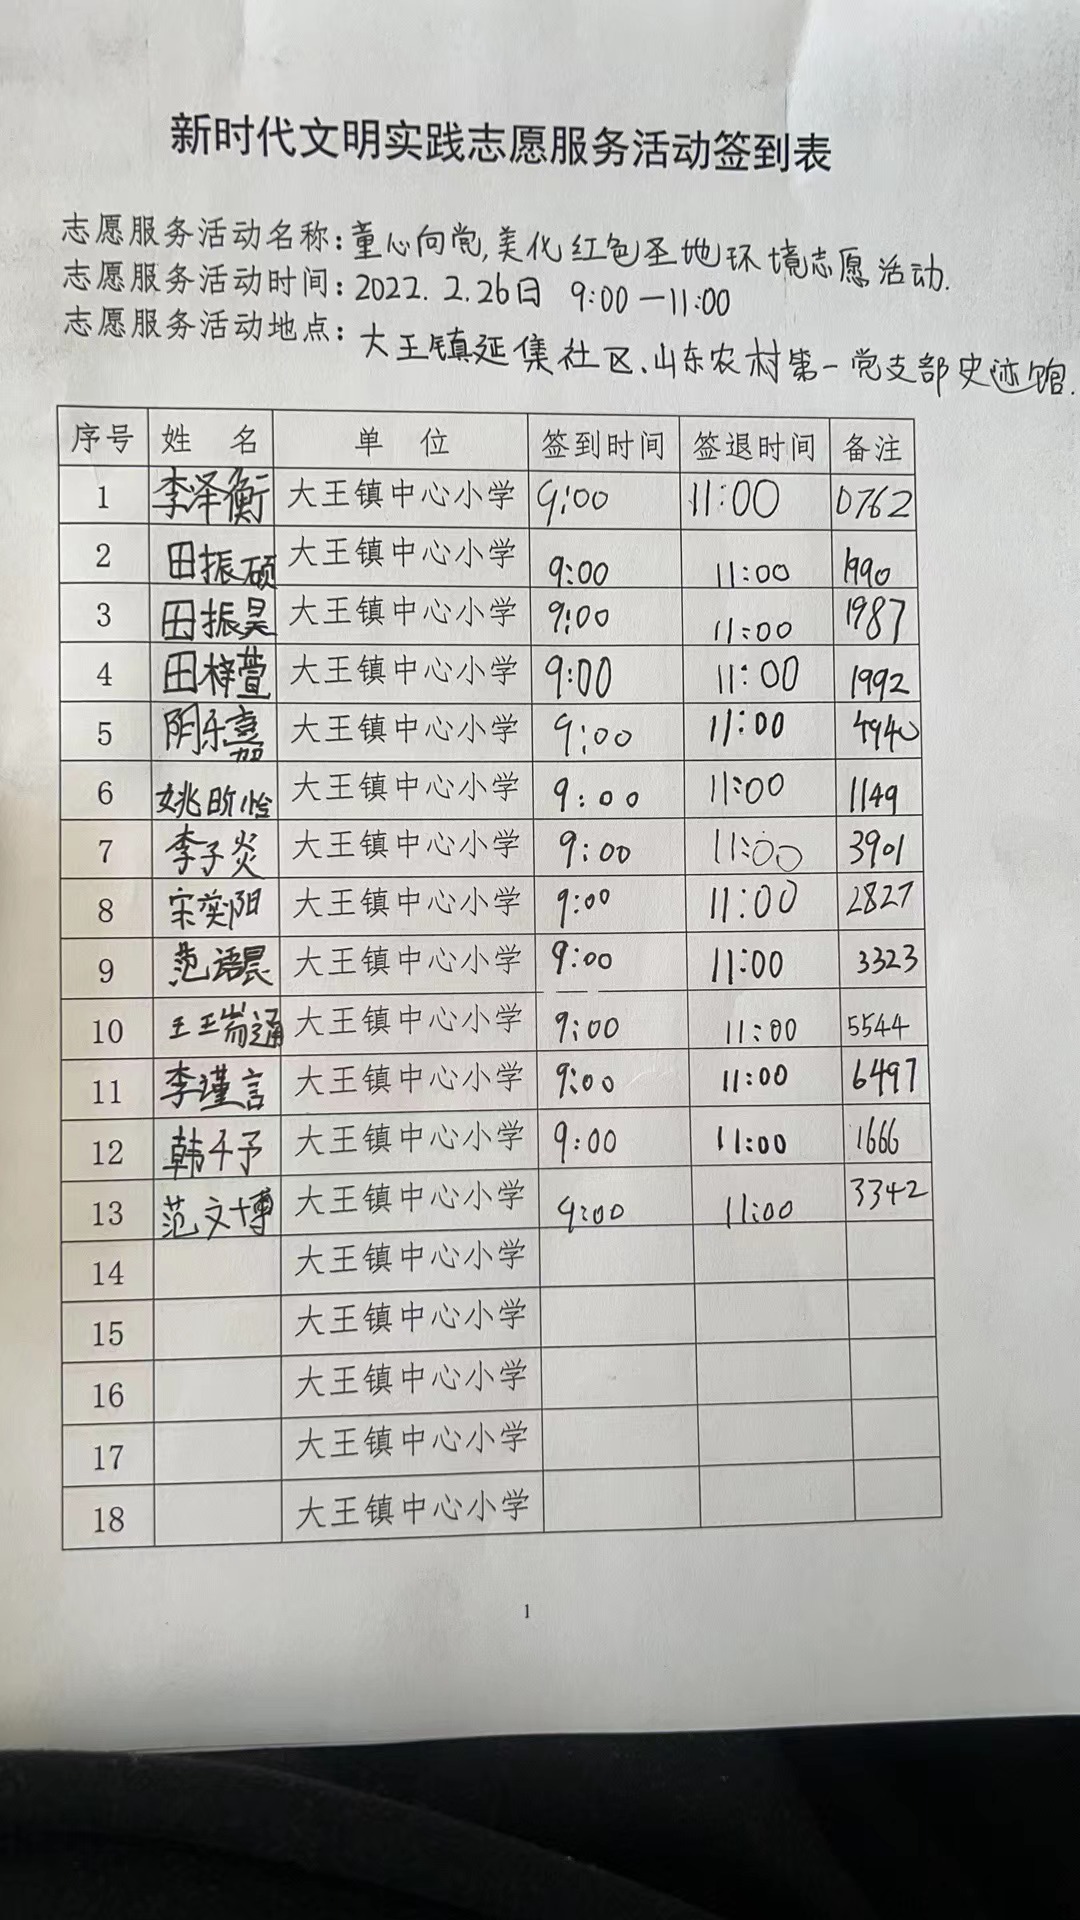 新时代文明实践志愿服务活动签到表
志愿服务活动名称:童心向党,美化红色圣地环境志愿活动.
志愿服务活动时间:2022.2.26日 9:00—11:00
志愿服务活动地点:大王镇延集社区、山东农村第一党支部史迹馆.
序号 姓名 单位 签到时间 签退时间 备注
1 李泽衡 大王镇中心小学 9:00 11:00 0762
2 田振硕 大王镇中心小学 9:00 11:00 1990
3 田振昊 大王镇中心小学 9:00 11:00 1987
4 田梓萱 大王镇中心小学 9:00 11:00 1992
5 阴乐嘉 大王镇中心小学 9:00 11:00 4940
6 姚昕怡 大王镇中心小学 9:00 11:00 1149
7 李子炎 大王镇中心小学 9:00 11:00 3901
8 宋奕阳 大王镇中心小学 9:00 11:00 2827
9 范语晨 大王镇中心小学 9:00 11:00 3323
10 王瑞通 大王镇中心小学 9:00 11:00 5544
11 李瑾言 大王镇中心小学 9:00 11:00 6497
12 韩千予 大王镇中心小学 9:00 11:00 1666
13 范文博 大王镇中心小学 9:00 11:00 3342
14 大王镇中心小学
15 大王镇中心小学
16 大王镇中心小学
17 大王镇中心小学
18 大王镇中心小学
1